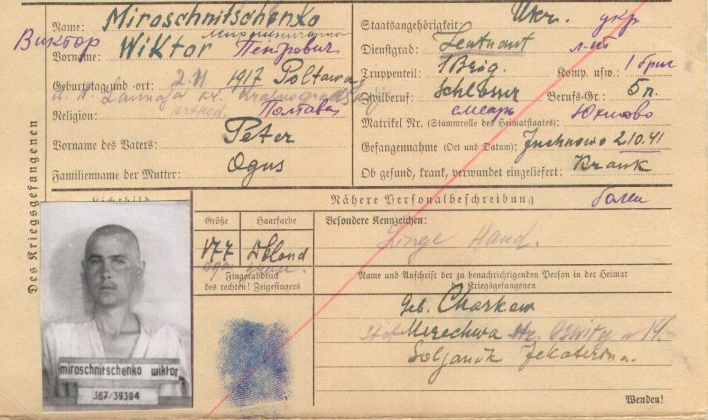 Des Kriegsgefangenen
Name: Miroschnitschenko
Мирошниченко
Виктор
Vorname: Wiktor Петрович
Geburtstag und -ort: 1917 Poltawa
Religion: Полтава
Vorname des Vaters: Peter
Familienname der Mutter: Ogus
Staatsangehörigkeit: Ukr. укр
Dienstgrad: Leutnant л-нт
Truppenteil: 1 Brig Komp. usw.: 1 бриг
Zivilberuf: Schlosser Berufs-Gr.: 5 п.
слесарь Юхново
Matrikel Nr. (Stammrolle des Heimatstaates):
Gefangennahme (Ort und Datum): Juchnowo 2.10.41
Ob gesund, krank, verwundet eingeliefert: Krank
болен
Lichtbild
Nähere Personalbeschreibung
Größe Haarfarbe
177 Dblond
Fingerabdruck
des rechten! Zeigefingers
Besondere Kennzeichen:
Hand.
Name und Anschrift der zu benachrichtigenden Person in der Heimat
des Kriegsgefangenen
Geb. Charkow
Merechwa str.
Soljanik Jekaterina.
Wenden!
miroschnitschenko wiktor
367/39394